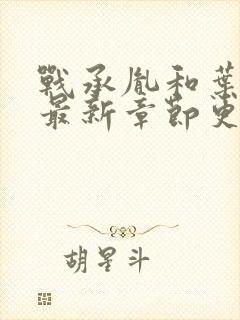 戰承胤和葉
最新章節更
胡星斗